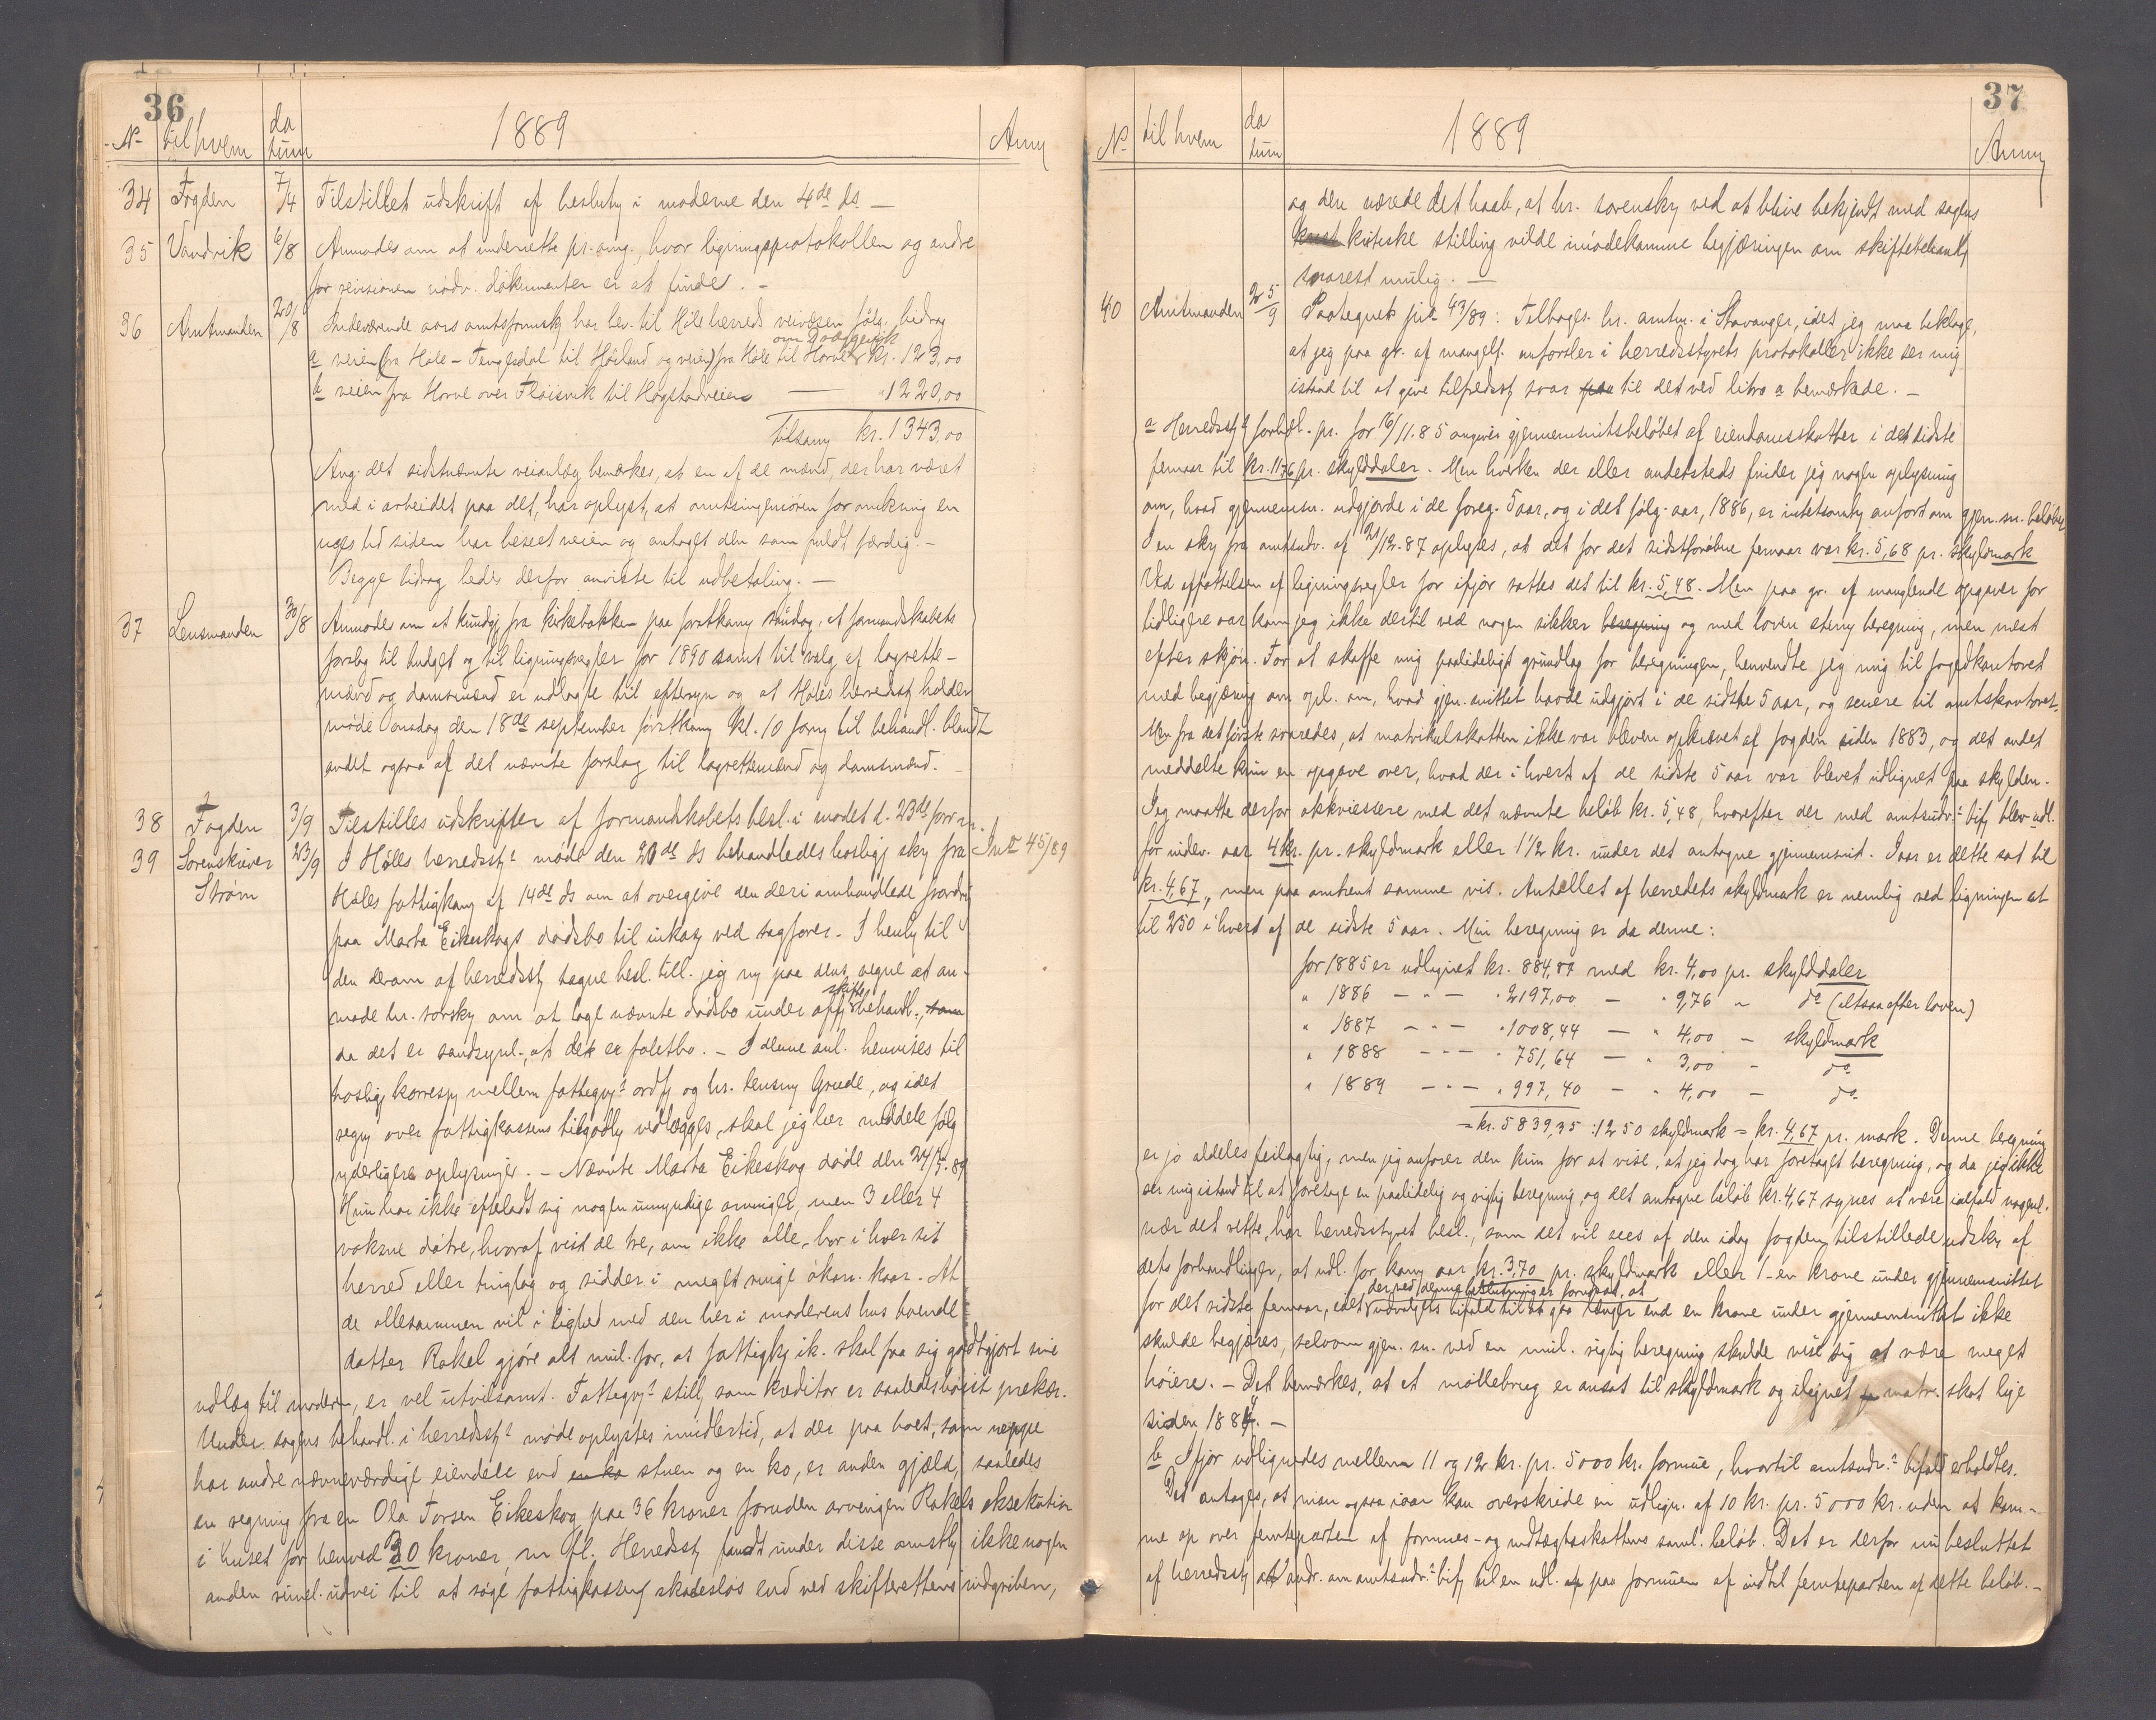 36
No til hvem datum 1889 Anm
34 Fogden 7/4 Tilstillet udskrift af beslutn i møderne den 4de ds. —
35 Vandvik 6/8 Anmodes om at underrette pr. omg., hvor ligningsprotokollen og andre
for revisionen nødv. dokumenter er at finde. —
36 Amtmanden 20/8 Indeværende aars amtsformsk har bev. til Høle herreds veivæsen følg. bidrag
a veien fra Høle – Tengesdal til Høiland og veien fra Høle til Horve kr. 123,00
b veien fra Horve over Fløisvik til Høgstadveien — " 1220,00
tilsam kr. 1343,00
Ang. det sidstnævnte veianlæg bemærkes, at en af de mænd, der har været
med i arbeidet paa det, har oplyst, at amtsingeniøren for omkring en
uges tid siden har beseet veien og antaget den som fuldt færdig. —
Begge bidrag bedes derfor anviste til udbetaling. —
37 Lensmanden 30/8 Anmodes om at kundgj fra kirkebakken paa førstkomm søndag, at formandskabets
forslag til budget og til ligningsregler for 1890 samt til valg af lagrette-
mænd og domsmænd er udlagte til eftersyn og at Høles herredsst holder
møde onsdag den 18de september førstkomm kl. 10 form til behandl. blandt
andet ogsaa af det nævnte forslag til lagrettemænd og domsmænd. —
38 Fogden 3/9 Tilstilles udskrifter af formandskabets besl. i mødet d. 23de forr m.
39 Sorenskriver Strøm 23/9 I Høles herredsst's møde den 20de ds behandledes hosligg skr fra Jnl 45/89
Høles fattigkom af 14de ds om at overgive den deri omhandlede fordri
paa Marta Eikeskogs dødsbo til inkasso ved sagfører. I henh til
den derom af herredsst tagne besl. till. jeg mg paa dens vegne at an-
mode hr. sorskr om at tage nævnte dødsbo under off skiftebehandl., som
da det er sandsynl., at det er falitbo. — I denne anl. henvises til
hosligg korresp mellem fattigv's ordf og hr. lensm Grude, og idet
regn over fattigkassens tilgodeh vedlægges, skal jeg her meddele følg
yderligere oplysninger. — Nævnte Marta Eikeskog døde den 24/5.89
Hun har ikke efterladt sig nogen umyndige arvinger, men 3 eller 4
voksne døtre, hvoraf vist de tre, om ikke alle, bor i hver sit
herred eller tinglag og sidder i meget ringe økon. kaar. At
de allesammen vil i lighed med den her i moderens hus boende
datter Rakel gjøre alt mul. for, at fattigk ik. skal faa sig godtgjort sine
udlæg til moderen, er vel utvilsomt. Fattigv's still som kreditor er saaledes høist prekær.
Under sagens behandl. i herredsst's møde oplystes imidlertid, at der paa boet, som neppe
har andre nævneværdige eiendele end en ko stuen og en ko, er anden gjæld, saaledes
en regning fra en Ola Torsen Eikeskog paa 36 kroner foruden arvingen Rakels eksekution
i huset for henved 30 kroner m fl. Herredsst fandt under disse omsth ikke nogen
anden rimel. udvei til at søge fattigkassen skadesløs end ved skifterettens indgriben,
37
No til hvem datum 1889 Anm
og den nærede det haab, at hr. sorenskr ved at blive bekjendt med sagens
kritiske stilling vilde imødekomme begjæringen om skiftebehandl
snarest mulig. —
40 Amtmanden 25/9 Paategnet jnl 43/89: Tilbages. hr. amtm. i Stavanger, idet jeg maa beklage,
at jeg paa gr. af mangelf. anførsler i herredsstyrets protokoller ikke ser mig
istand til at give tilfredsst svar paa til det ved litra a bemærkede. —
a Herredsst's forhdl. pr. for 16/11.85 angives gjennemsnitsbeløbet af eiendomsskatten i det sidste
femaar til kr. 11,76 pr. skylddaler. Men hverken der eller andetsteds finder jeg nogen oplysning
om, hvad gjennemsn. udgjorde i de foreg. 5 aar, og i det følg. aar, 1886, er intetsomh anført om gjen.sn. beløbet.
I en skr fra amtsudv. af 21/12.87 oplystes, at det for det sidstforøbne femaar var kr. 5,68 pr. skyldmark
Ved affattelsen af ligningsregler for ifjor sattes det til kr. 5,48. Men paa gr. af manglende opgaver for
tidligere aar kom jeg ikke dertil ved nogen sikker beregning og med loven stemm beregning, men mest
efter skjøn. For at skaffe mig paalideligt grundlag for beregningen, henvendte jeg mig til fogedkontoret
med begjæring om opl. om, hvad gjen.snittet havde udgjort i de sidste 5 aar, og senere til amtskontoret.
Men fra det første svaredes, at matrikulskatten ikke var bleven opkrævet af fogden siden 1883, og det andet
meddelte kun en opgave over, hvad der i hvert af de sidste 5 aar var blevet udlignet paa skylden.
Jeg maatte derfor akkviescere med det nævnte beløb kr. 5,48, hvorefter der med amtsudv.'s bif blev udl.
for indev. aar 4 kr. pr. skyldmark eller 1 1/2 kr. under det antagne gjennemsnit. Iaar er dette sat til
kr. 4,67, men paa omtrent samme vis. Antallet af herredets skyldmark er nemlig ved ligningen sat
til 250 i hvert af de sidste 5 aar. Min beregning er da denne:
for 1885 er udlignet kr. 884,87 med kr. 4,00 pr. skylddaler
" 1886 — " — " 2197,00 — " 9,76 " do (altsaa efter loven)
" 1887 — " — " 1008,44 — " 4,00 — skyldmark
" 1888 — " — " 751,64 — " 3,00 — do
" 1889 — " — " 997,40 — " 4,00 — do
= kr. 5839,35 : 1250 skyldmark = kr. 4,67 pr. mark. Denne beregning
er jo aldeles feilagtig, men jeg anfører den kun for at vise, at jeg dog har foretaget beregning, og da jeg ikke
ser mig istand til at foretage en paalidelig og rigtig beregning, og det antagne beløb kr. 4,67 synes at være ialfald nogenl.
nær det rette, har herredsstyret besl., som det vil sees af den idag fogden tilstillede udskr af
dets forhandlinger, at udl. for komm aar kr. 3,70 pr. skyldmark eller 1 – en krone under gjennemsnittet
der ved denne beslutning er forudsat, at
for det sidste femaar, idet udvalgets bifald til at gaa længer end en krone under gjennemsnittet ikke
skulde begjæres, selvom gjen. sn. ved en mul. rigtig beregning skulde vise sig at være meget
høiere. — Det bemærkes, at et møllebrug er ansat til skyldmark og ilignet matr. skat lige
siden 1884. —
b Ifjor udlignedes mellem 11 og 12 kr. pr. 5000 kr. formue, hvortil amtsudv.'s bifald erholdtes.
Det antages, at man ogsaa iaar kan overskride en udlign. af 10 kr. pr. 5000 kr. uden at kom-
me op over femteparten af formues- og indtægtsskattens saml. beløb. Det er derfor nu besluttet
af herredsst at andr. om amtsudv.'s bif til en udl. af paa formuen af indtil femteparten af dette beløb. —